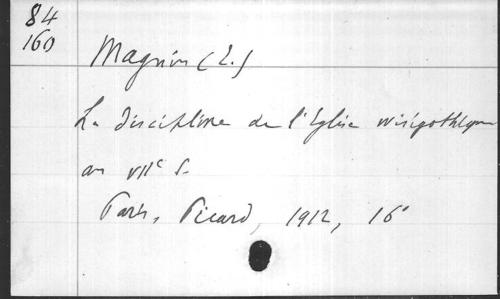 84
160
Magnin (E.)
La discipline de l'Eglise wisigothique
au VIIe s.
Paris, Picard, 1912, 16°